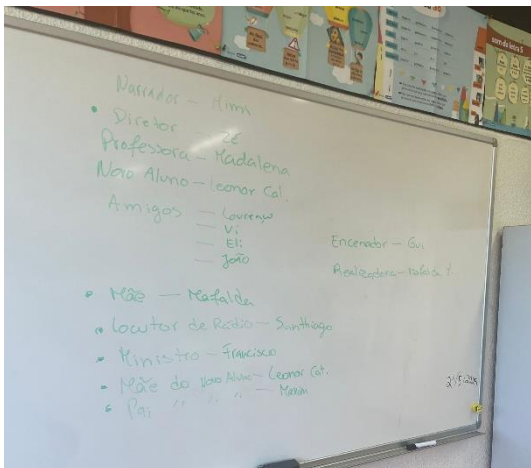 som da letra S
Narrador - Mimi
• Diretor - Zé
Professora - Madalena
Novo Aluno - Leonor Cal.
Amigos - Lourenço
- Vi
- Eli
- João
Encenador - Gui
Realizadora - Mafalda
• Mãe - Mafalda
• Locutor de Rádio - Santhiago
• Ministro - Francisco
• Mãe do Novo Aluno - Leonor Cat.
• Pai " " " - Maxim